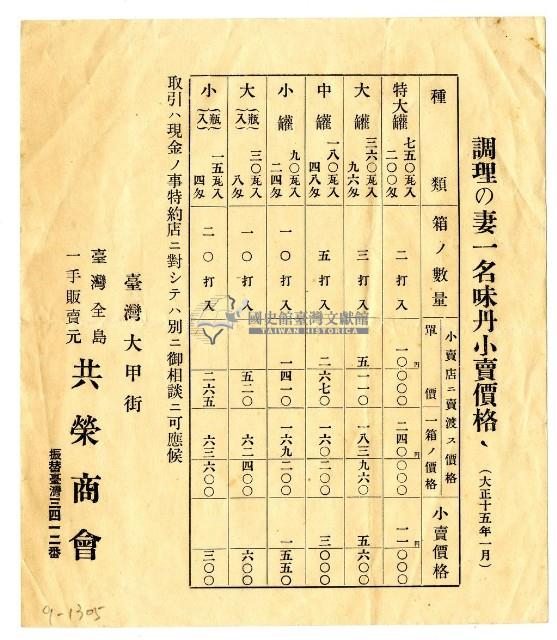 調理の妻一名味丹小賣價格、
（大正十五年一月）
種類
箱ノ數量
小賣店ニ賣渡ス價格
單價
一箱ノ價格
小賣價格
特大罐 七五〇瓦入 二〇〇匁 二打入 一〇円〇〇〇 二四〇円〇〇〇 一一円〇〇〇
大罐 三六〇瓦入 九六匁 三打入 五一一〇 一八三九六〇 五六〇〇
中罐 一八〇瓦入 四八匁 五打入 二六七〇 一六〇二〇〇 三〇〇〇
小罐 九〇瓦入 二四匁 一〇打入 一四一〇 一六九二〇〇 一五五〇
大（瓶入） 三〇瓦入 八匁 一〇打入 五二〇 六二四〇〇 六〇〇
小（瓶入） 一五瓦入 四匁 二〇打入 二六五 六三六〇〇 三〇〇
取引ハ現金ノ事特約店ニ對シテハ別ニ御相談ニ可應候
臺灣大甲街
臺灣全島
一手販賣元
共榮商會
振替臺灣三四一二番
國史館臺灣文獻館
TAIWAN HISTORICA
9-1305